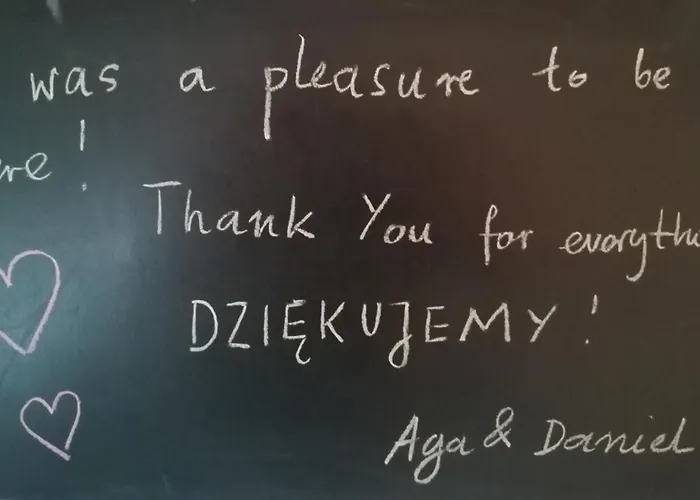 was a pleasure to be
ere!
Thank You for evorythi
DZIĘKUJEMY!
Aga & Daniel